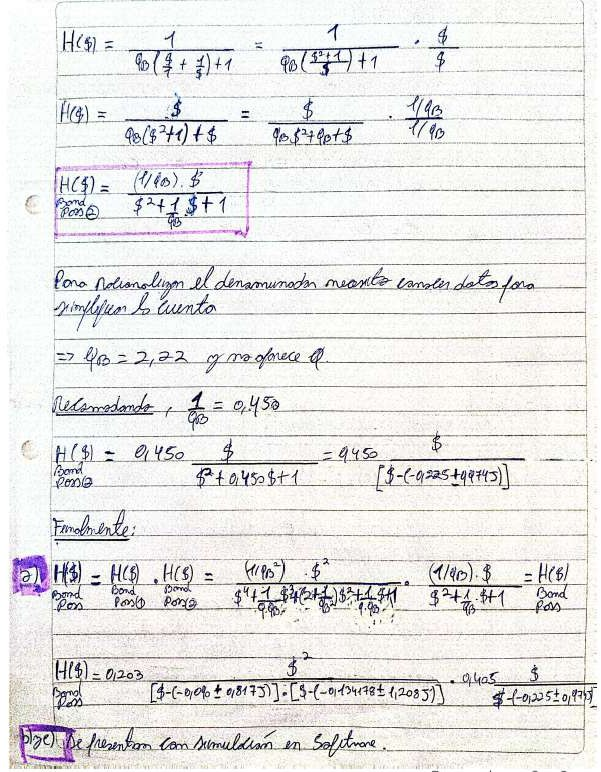 H($) = 1 / (qB($/1 + 1/$) + 1) = 1 / (qB(($²+1)/$) + 1) · $/$
H($) = $ / (qB($²+1) + $) = $ / (qB $² + qB + $) · (1/qB)/(1/qB)
H($) Band Pass ② = (1/qB) · $ / ($² + 1/qB $ + 1)
Para racionalizar el denominador necesito conocer datos para
simplificar la cuenta
=> qB = 2,22 y no aparece Q.
Recomodando, 1/qB = 0,450
H($) Band Pass 2 = 0,450 $ / ($² + 0,450 $ + 1) = 0,450 $ / [$-(-0,225 ± 0,974J)]
Finalmente:
a) H($) Band Pass = H($) Band Pass ① · H($) Band Pass ② = (1/qB²) · $² / ($⁴ + 1/q.qB $³ + (2 + 1/qB²) $² + 1/q.qB $ + 1) · (1/qB) · $ / ($² + 1/qB · $ + 1) = H($) Band Pass
H($) Band Pass = 0,203 $² / [$-(-0,090 ± 0,817J)]·[$-(-0,134178 ± 1,208J)] · 0,405 $ / $-(-0,225 ± 0,974J)
b) y c) Se presentan con simulación en Software.